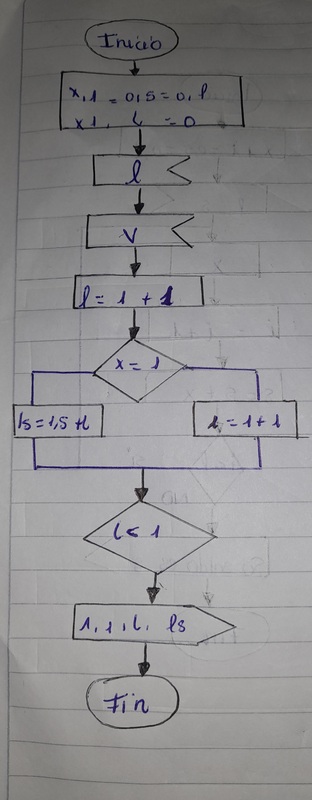 Inicio
x,1 = 0,5=0, l
x1, L =0
l
V
l = 1 + 1
x = 1
ls=1,5+l
1 = 1+1
L ≤ 1
1, 1, L, ls
Fin